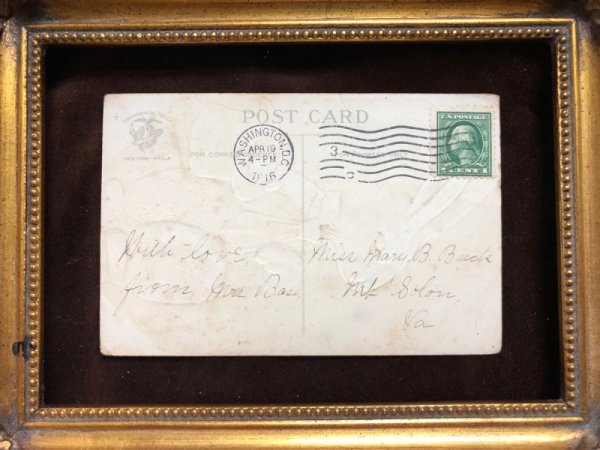 POST CARD
NEW YORK-PHILA.
FOR ADDRESS ONLY
WASHINGTON, D.C.
APR 19
4-PM
1916
3
U.S. POSTAGE
CENT 1
With love,
from Mrs Base
Miss Mary B. Buck
Mt Solon,
Va